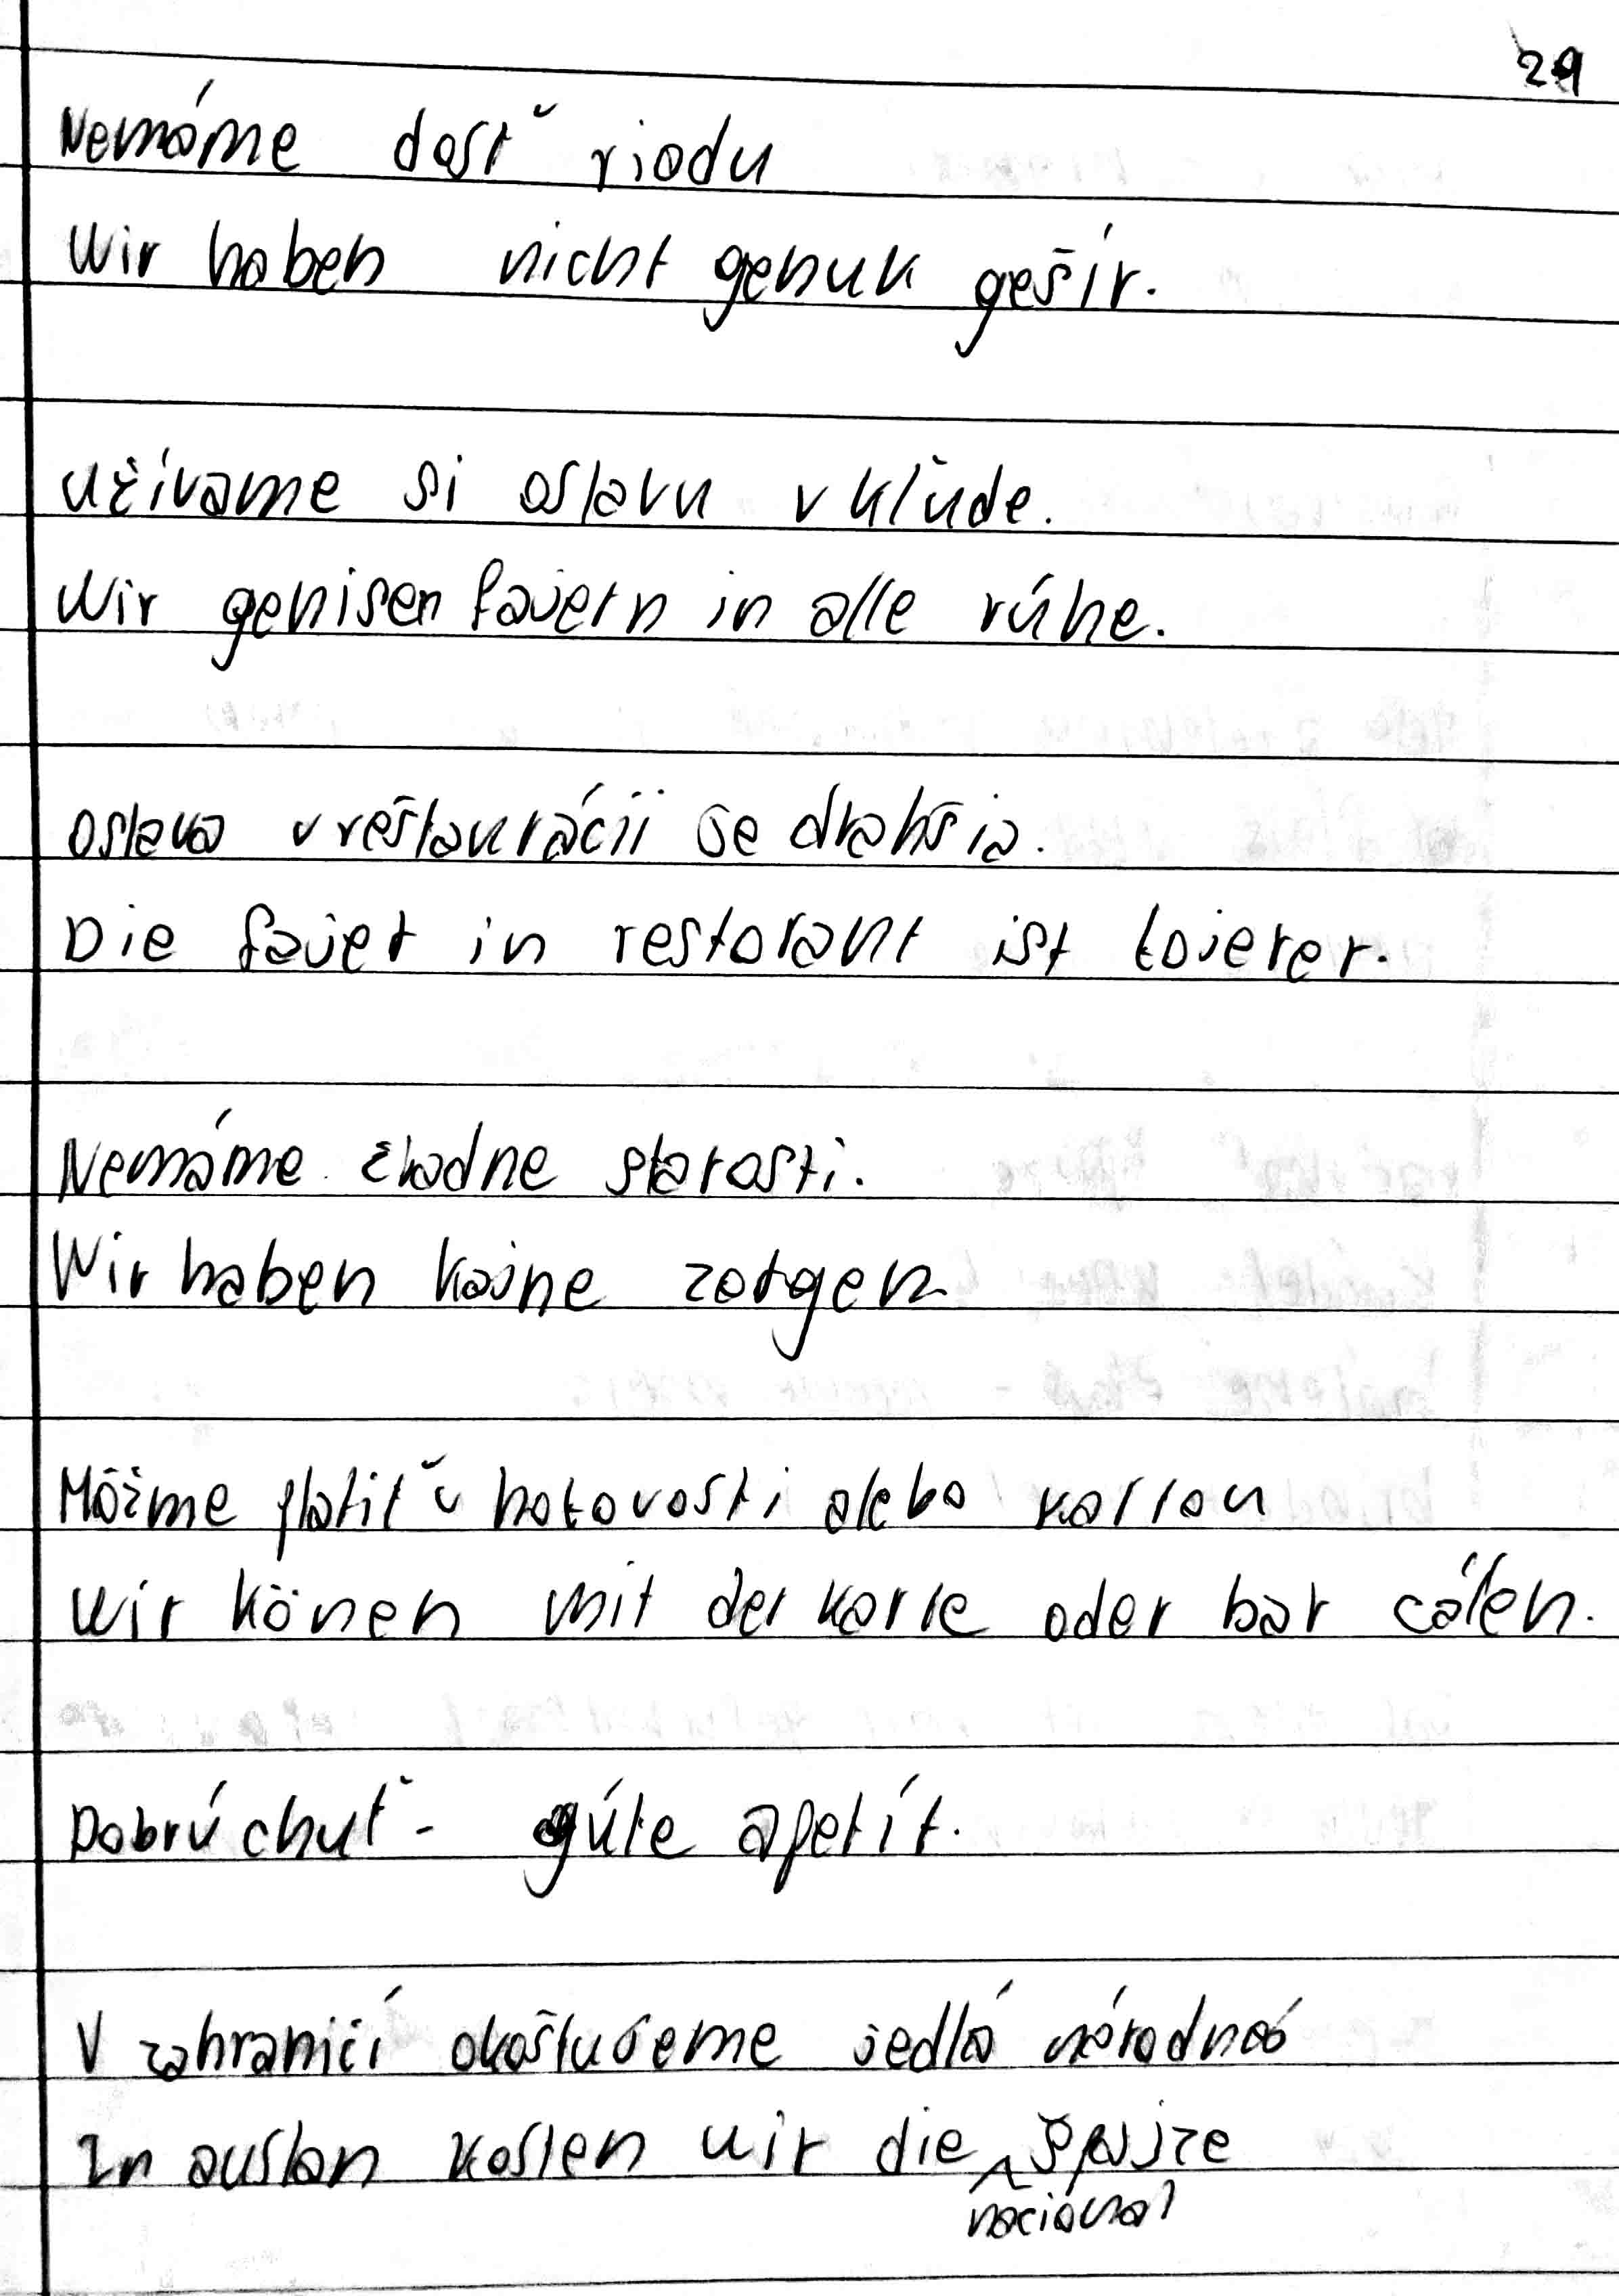 29
Nemáme dosť riadu
Wir haben nicht genuk gešír.
užívame si oslavu v kľude.
Wir genisen fajern in alle rúhe.
oslava v reštaurácii je drahšia.
Die fajer in restorant ist tojerer.
Nemáme žiadne starosti.
Wir haben kajne zorgen
Môžme platiť v hotovosti alebo kartou
Wir könen mit der karte oder bar cálen.
Dobrú chuť - gúte apetít.
V zahraničí okoštujeme jedlá národné
In auslan kosten wir die nacional špajze